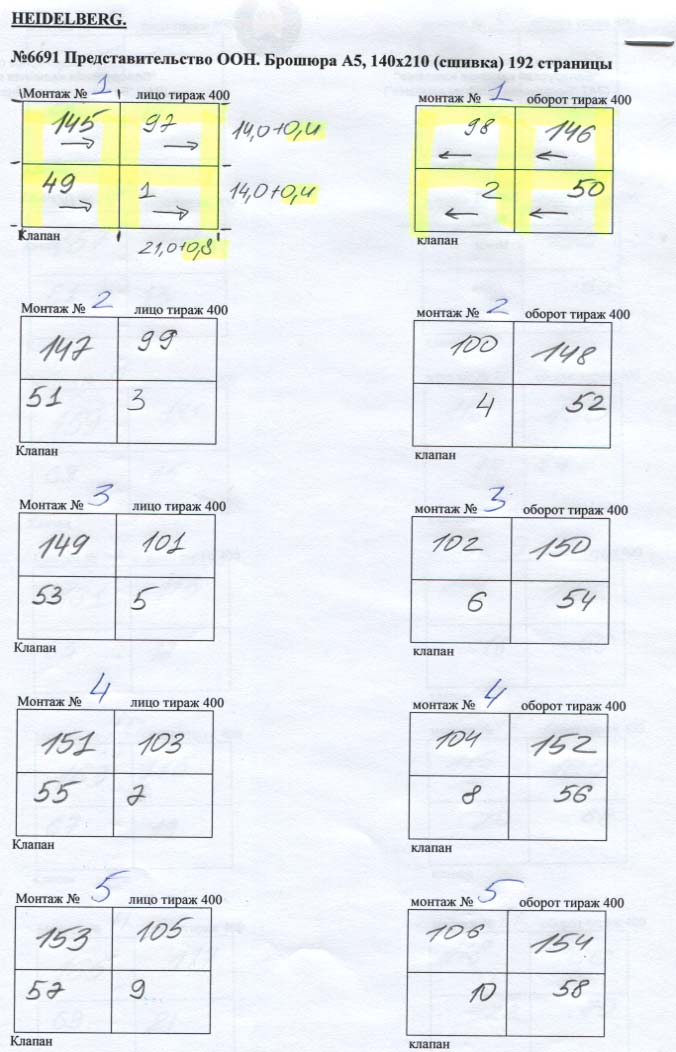 HEIDELBERG.
№6691 Представительство ООН. Брошюра А5, 140х210 (сшивка) 192 страницы
Монтаж № 1 лицо тираж 400
145 97 14,0+0,4
49 1 14,0+0,4
Клапан
21,0+0,8
монтаж № 1 оборот тираж 400
98 146
2 50
клапан
Монтаж № 2 лицо тираж 400
147 99
51 3
Клапан
монтаж № 2 оборот тираж 400
100 148
4 52
клапан
Монтаж № 3 лицо тираж 400
149 101
53 5
Клапан
монтаж № 3 оборот тираж 400
102 150
6 54
клапан
Монтаж № 4 лицо тираж 400
151 103
55 7
Клапан
монтаж № 4 оборот тираж 400
104 152
8 56
клапан
Монтаж № 5 лицо тираж 400
153 105
57 9
Клапан
монтаж № 5 оборот тираж 400
106 154
10 58
клапан